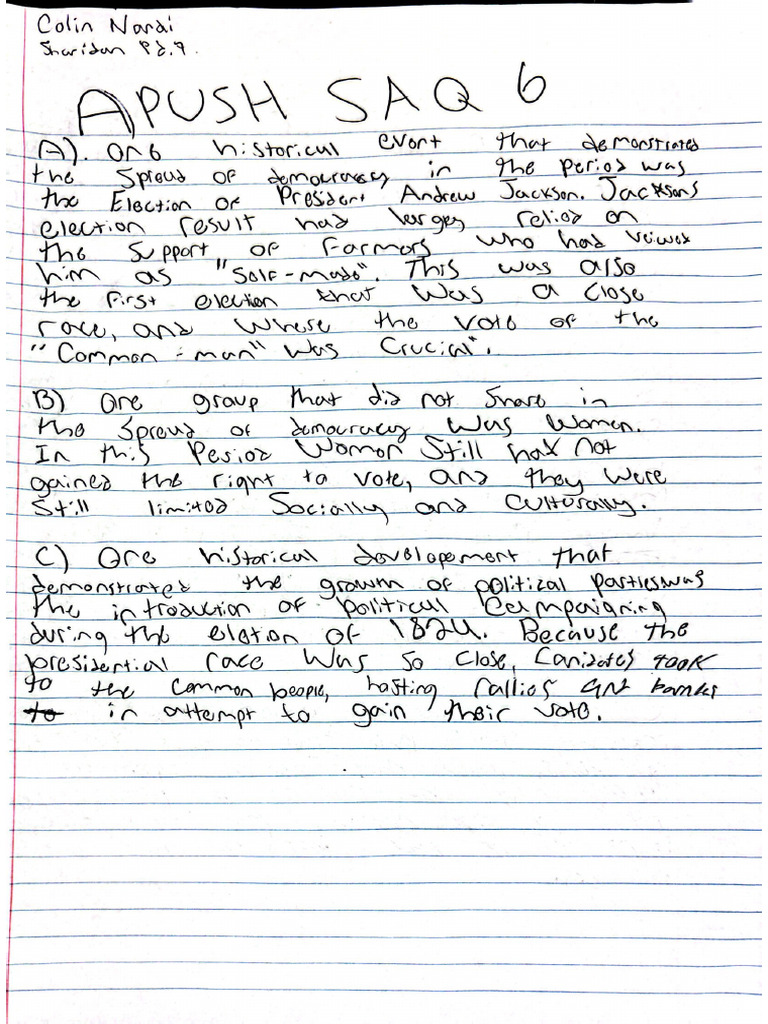 Colin Nardi
Sheridan Pd.9.
APUSH SAQ 6
A). One historical event that demonstrated
the spread of democracy in the period was
the Election of President Andrew Jackson. Jacksons
election result had largey relied on
the support of Farmers who had veiwed
him as "Self-made". This was also
the first election that was a close
race, and where the vote of the
"Common-man" was crucial".
B) One group that did not share in
the spread of democracy was women.
In this Period women still had not
gained the right to vote, and they were
still limited socially and culturally.
C) One historical developement that
demonstrated the growth of political parties was
the introduction of political campaigning
during the eletion of 1824. Because the
presidential race was so close, canidates took
to the common people, hosting rallies and
in attempt to gain their vote.